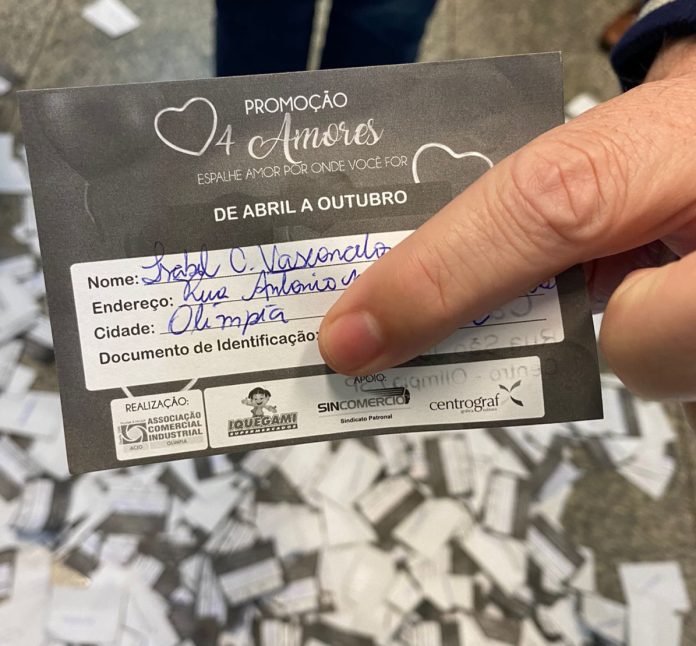 PROMOÇÃO
4 Amores
ESPALHE AMOR POR ONDE VOCÊ FOR
DE ABRIL A OUTUBRO
Nome: Isabel C. Vasconcelos
Endereço: Rua Antonio
Cidade: Olimpia
Documento de Identificação:
REALIZAÇÃO:
ASSOCIAÇÃO
COMERCIAL
INDUSTRIAL
ACIO OLIMPIA
IQUEGAMI
SUPERMERCADOS
APOIO:
SINCOMERCIO
Sindicato Patronal
centrograf
gráfica editora